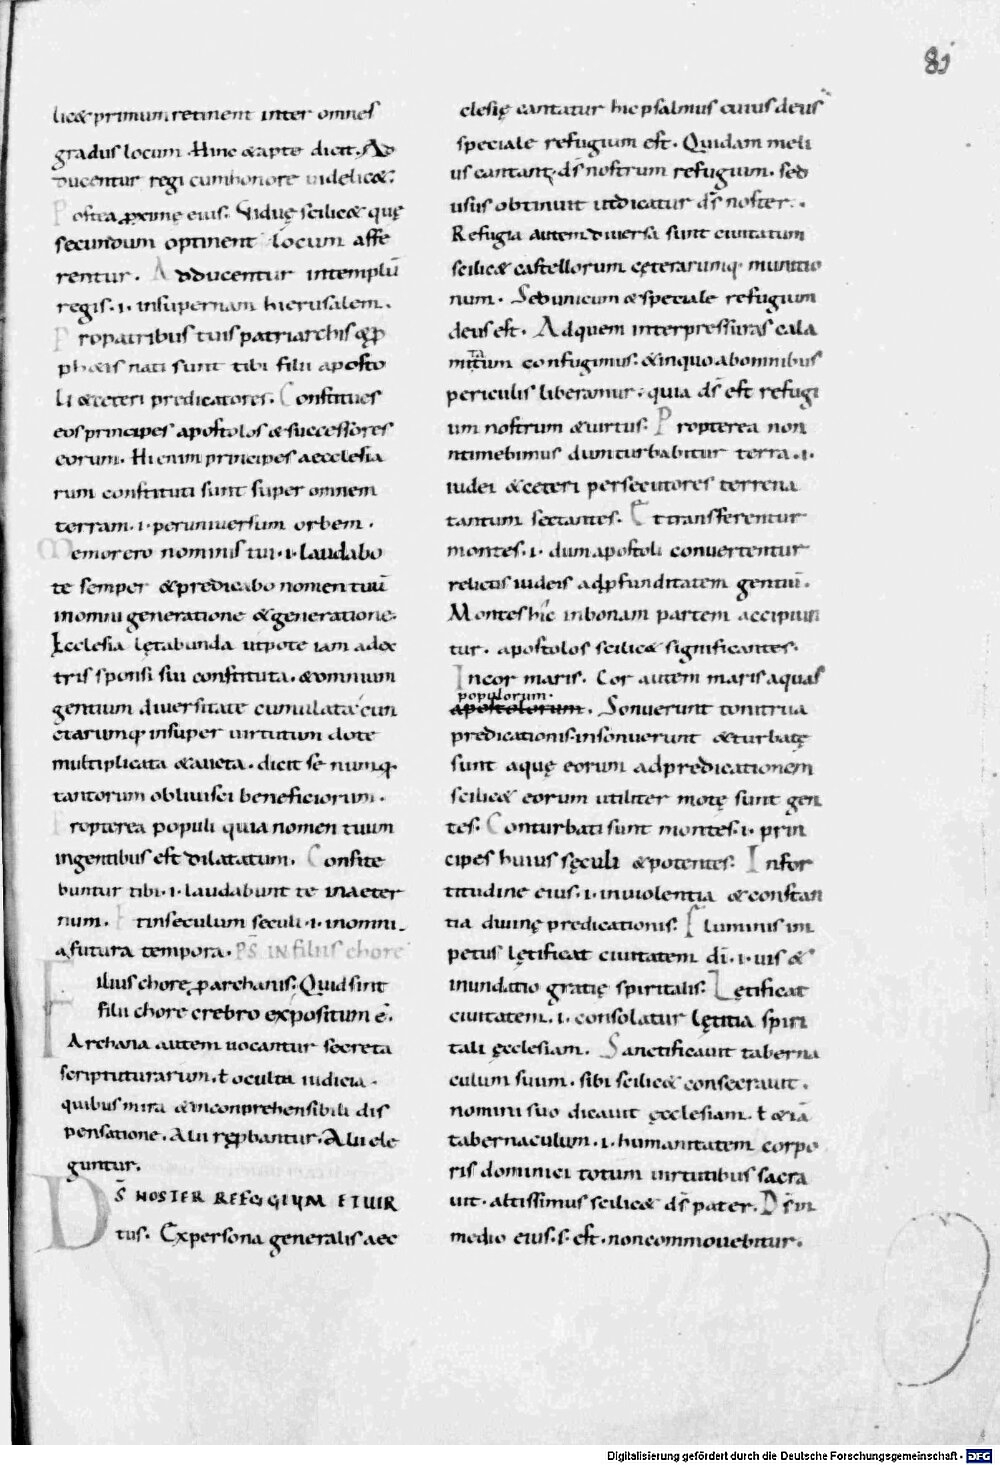 81
lic& primum retinent inter omnes
gradus locum. Hinc & apte dicit. Ad
ducentur regi cum honore videlic&.
Postea proxime eius. Viduę scilic& quę
secundum optinent locum affe
rentur. Adducentur in templū
regis .i. in supernam hierusalem.
Pro patribus tuis patriarchis & p
ph&is nati sunt tibi filii aposto
li & ceteri predicatores. Constitues
eos principes apostolos & successores
eorum. Hi enim principes aecclesia
rum constituti sunt super omnem
terram .i. per universum orbem.
Memor ero nominis tui .i. laudabo
te semper & predicabo nomen tuū
in omni generatione & generatione.
Ecclesia lętabunda utpote iam a dex
tris sponsi sui constituta. & omnium
gentium diversitate cumulata cun
ctarumq; insuper virtutum dote
multiplicata & aucta. dicit se numq
tantorum oblivisci beneficiorum.
Propterea populi quia nomen tuum
in gentibus est dilatatum. Confite
buntur tibi .i. laudabunt te in aeter
num. Et in seculum seculi .i. in omni
a futura tempora. PS IN filiis chore
Filiis chore p archanis. Quid sint
filii chore crebro expositum ē.
Archana autem vocantur secreta
scriptuturarum. ł occulta iudicia.
quibus mira & inconprehensibili dis
pensatione. Alii rępbantur. Alii ele
guntur.
DS̄ NOSTER REFUGIUM ET VIR
tus. Ex persona generalis aec
clesię cantatur hic psalmus cuius deus
speciale refugium est. Quidam meli
us cantant ds̄ nostrum refugium. sed
usus obtinuit ut dicatur ds̄ noster.
Refugia autem diversa sunt civitatum
scilic& castellorum cęterarumq; munitio
num. Sed unicum & speciale refugium
deus est. Ad quem inter pressuras cala
mitatum confugimus. & in quo ab omnibus
periculis liberamur. quia ds̄ est refugi
um nostrum & virtus. Propterea non
ntimebimus dum turbabitur terra .i.
iudei & ceteri persecutores terrena
tantum sectantes. Et transferentur
montes .i. dum apostoli convertentur
relictis iudeis ad pfunditatem gentiū.
Montes hic in bonam partem accipiun
tur. apostolos scilic& significantes.
In cor maris. Cor autem maris aquas
populorum.
apostolorum. Sonuerunt tonitrua
predicationis insonuerunt & turbatę
sunt aquę eorum ad predicationem
scilic& eorum utiliter motę sunt gen
tes. Conturbati sunt montes .i. prin
cipes huius sęculi & potentes. In for
titudine eius .i. in violentia & constan
tia divinę predicationis. Fluminis im
petus lętificat civitatem dī .i. vis &
inundatio gratię spiritalis. Lętificat
civitatem .i. consolatur lętitia spiri
tali ęcclesiam. Sanctificavit taberna
culum suum. sibi scilic& consecravit.
nomini suo dicavit ęcclesiam. ł & iā
tabernaculum .i. humanitatem corpo
ris dominici totum virtutibus sacra
vit. altissimus scilic& ds̄ pater. Ds̄ in
medio eius .s. est. non commovebitur.
Digitalisierung gefördert durch die Deutsche Forschungsgemeinschaft - DFG